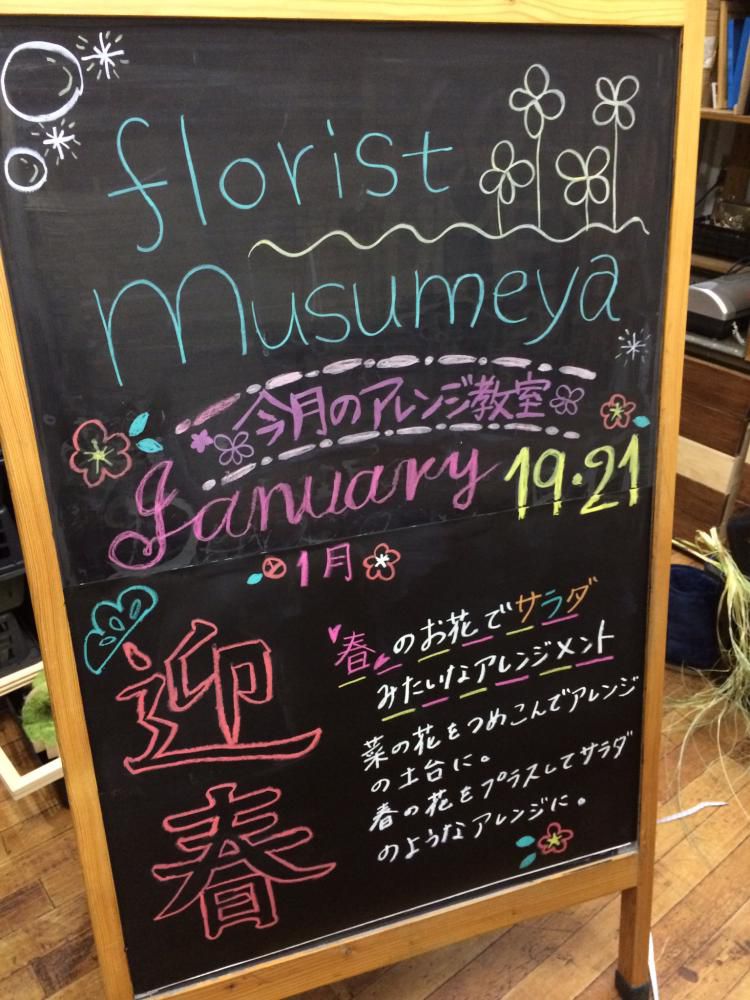 florist
Musumeya
今月のアレンジ教室
January 19・21
1月
迎春
春のお花でサラダ
みたいなアレンジメント
菜の花をつめこんでアレンジ
の土台に。
春の花をプラスしてサラダ
のようなアレンジに。